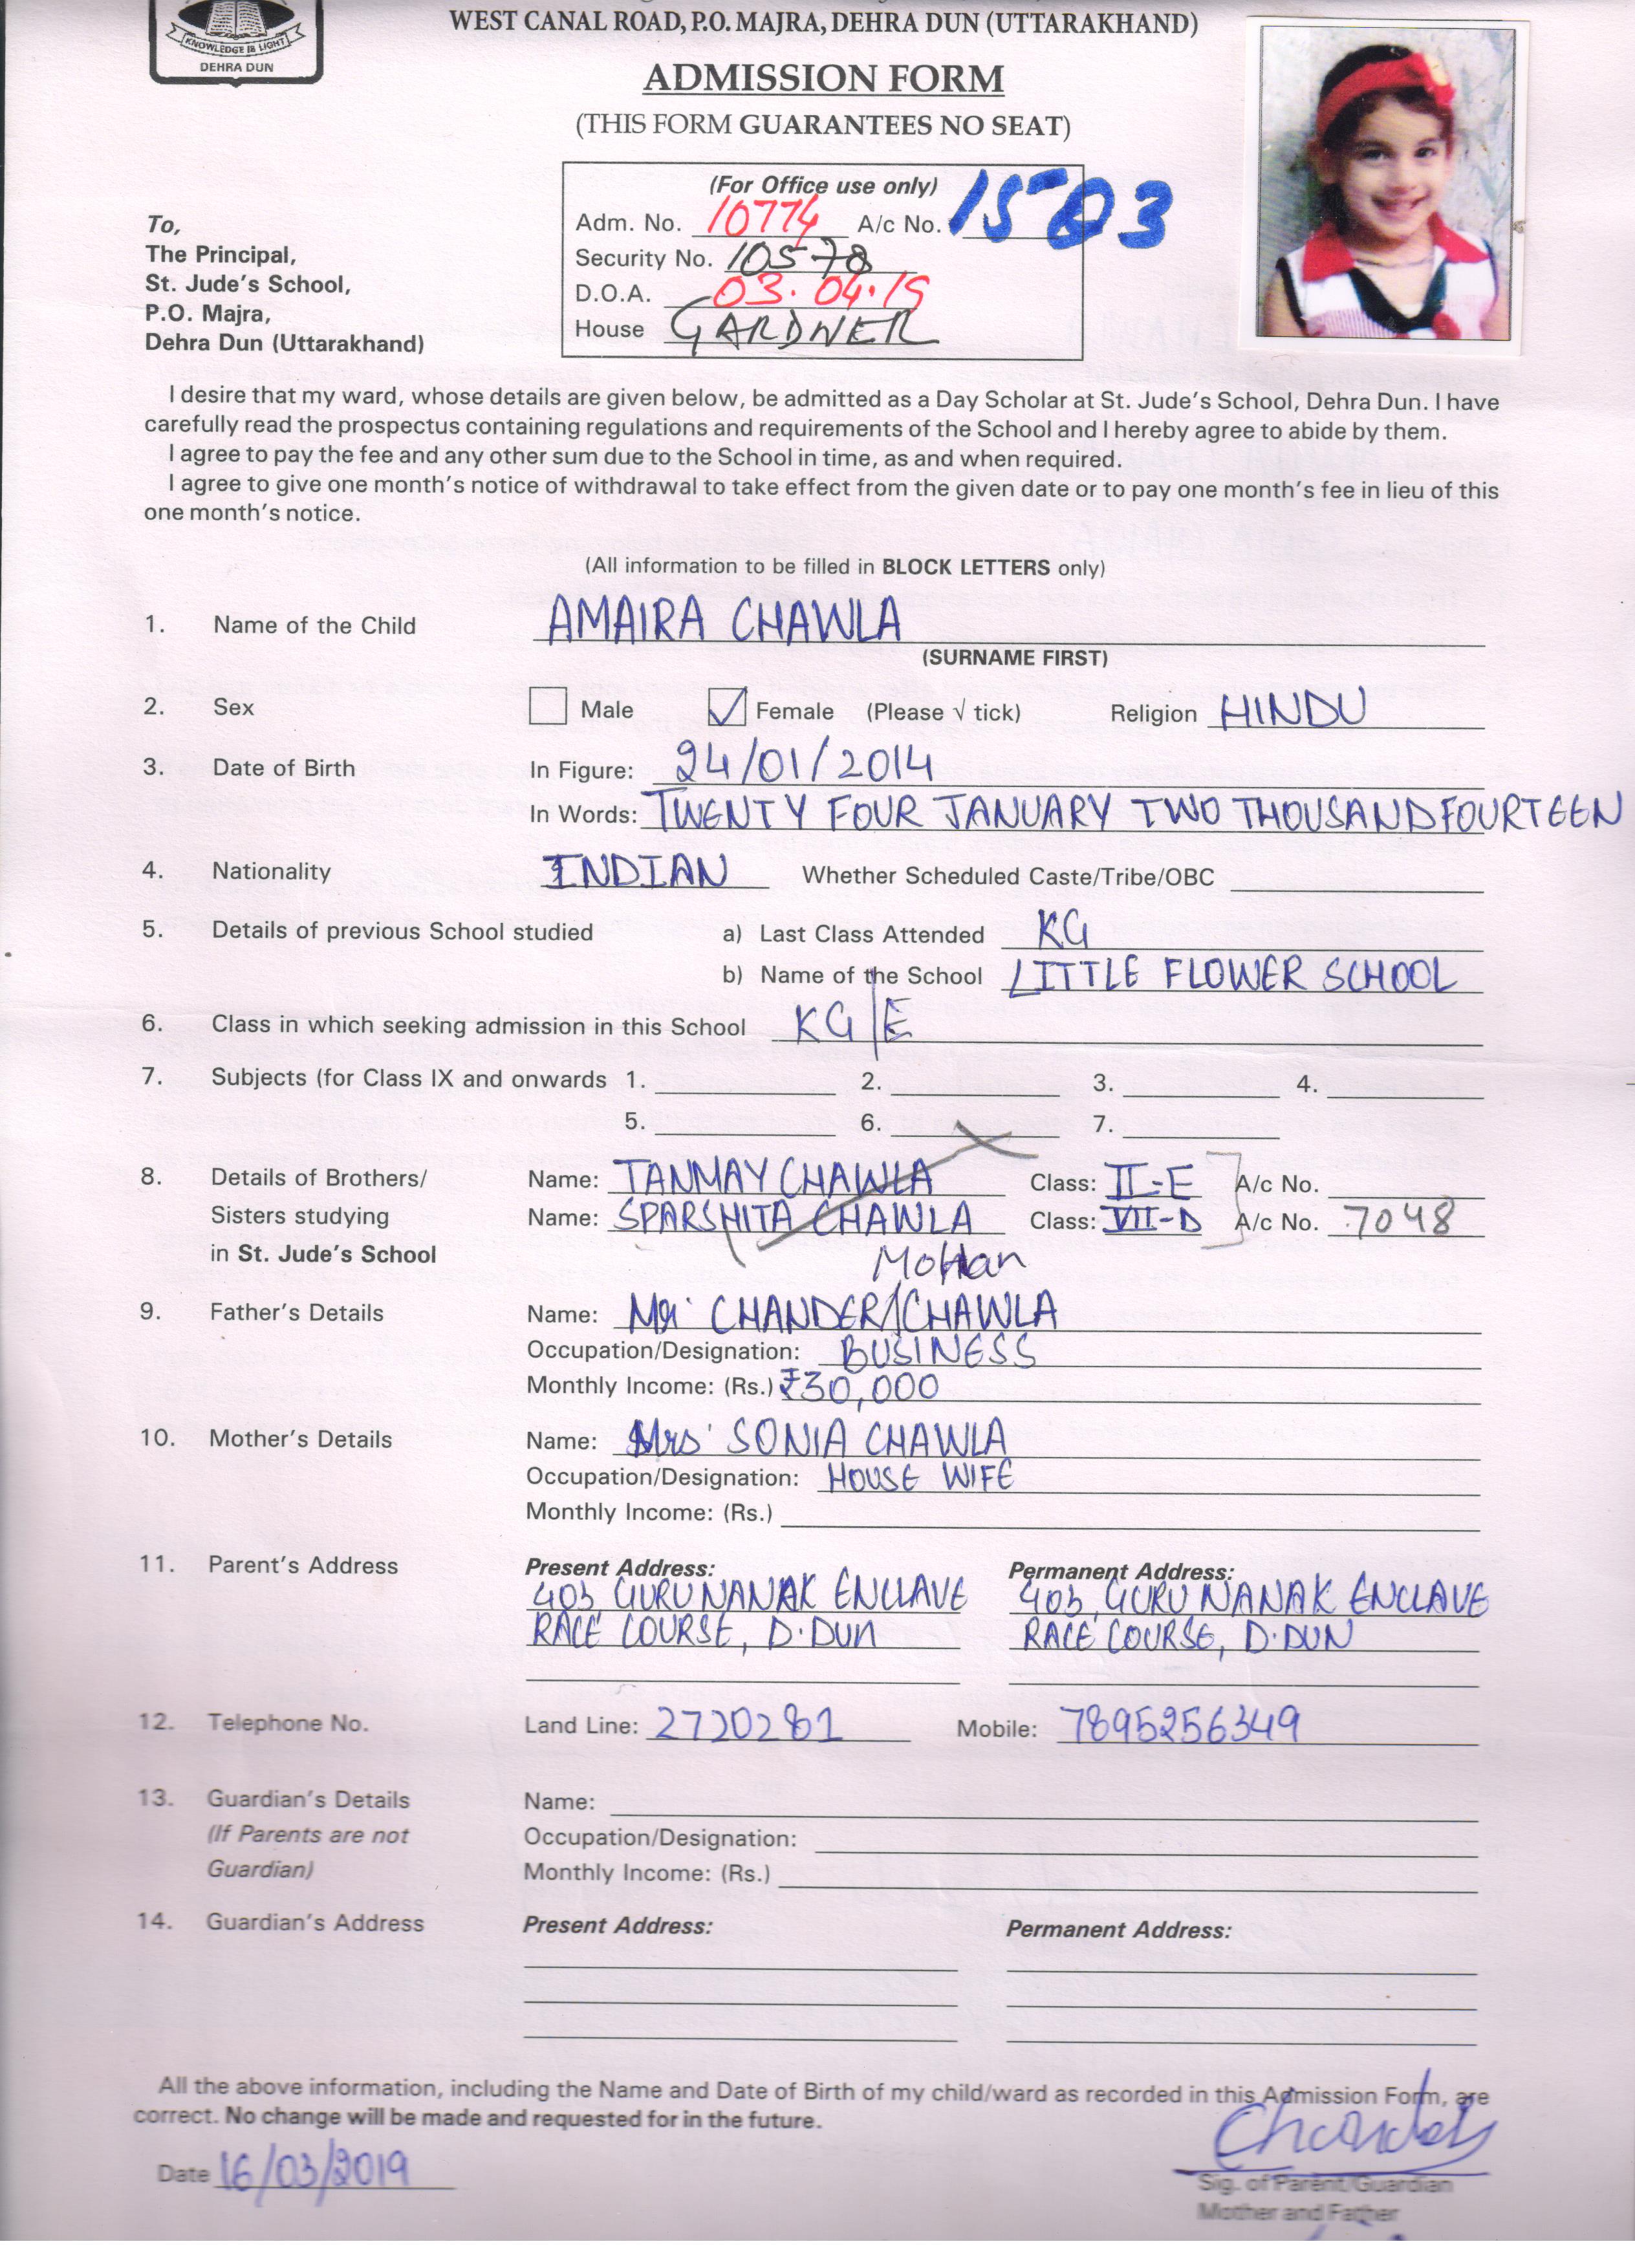 KNOWLEDGE IS LIGHT
DEHRA DUN
WEST CANAL ROAD, P.O. MAJRA, DEHRA DUN (UTTARAKHAND)
ADMISSION FORM
(THIS FORM GUARANTEES NO SEAT)
(For Office use only)
Adm. No. 10774 A/c No. 1503
Security No. 10578
D.O.A. 03.04.19
House GARDNER
To,
The Principal,
St. Jude's School,
P.O. Majra,
Dehra Dun (Uttarakhand)
I desire that my ward, whose details are given below, be admitted as a Day Scholar at St. Jude's School, Dehra Dun. I have
carefully read the prospectus containing regulations and requirements of the School and I hereby agree to abide by them.
I agree to pay the fee and any other sum due to the School in time, as and when required.
I agree to give one month's notice of withdrawal to take effect from the given date or to pay one month's fee in lieu of this
one month's notice.
(All information to be filled in BLOCK LETTERS only)
1. Name of the Child AMAIRA CHAWLA
(SURNAME FIRST)
2. Sex Male Female (Please √ tick) Religion HINDU
3. Date of Birth In Figure: 24/01/2014
In Words: TWENTY FOUR JANUARY TWO THOUSAND FOURTEEN
4. Nationality INDIAN Whether Scheduled Caste/Tribe/OBC
5. Details of previous School studied a) Last Class Attended KG
b) Name of the School LITTLE FLOWER SCHOOL
6. Class in which seeking admission in this School KG|E
7. Subjects (for Class IX and onwards 1. 2. 3. 4.
5. 6. 7.
8. Details of Brothers/ Name: TANMAY CHAWLA Class: II-E A/c No.
Sisters studying Name: SPARSHITA CHAWLA Class: VII-D A/c No. 7048
in St. Jude's School
Mohan
9. Father's Details Name: Mr. CHANDER CHAWLA
Occupation/Designation: BUSINESS
Monthly Income: (Rs.) ₹30,000
10. Mother's Details Name: Mrs SONIA CHAWLA
Occupation/Designation: HOUSE WIFE
Monthly Income: (Rs.)
11. Parent's Address Present Address: Permanent Address:
403 GURU NANAK ENCLAVE 403, GURU NANAK ENCLAVE
RACE COURSE, D.DUN RACE COURSE, D.DUN
12. Telephone No. Land Line: 2720281 Mobile: 7895256349
13. Guardian's Details Name:
(If Parents are not Occupation/Designation:
Guardian) Monthly Income: (Rs.)
14. Guardian's Address Present Address: Permanent Address:
All the above information, including the Name and Date of Birth of my child/ward as recorded in this Admission Form, are
correct. No change will be made and requested for in the future.
Date 16/03/2019
Sig. of Parent/Guardian
Mother and Father